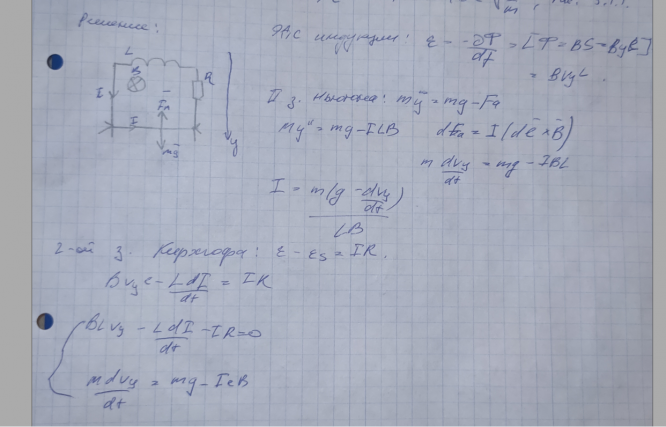 Решение:
ЭДС индукции: ε = -dФ/dt = [Ф = BS = ByL]
= BVyL.
L
B
R
I
Fa
I
mg
y
II з. Ньютона: mÿ = mg - Fa
My'' = mg - ILB dFa = I(dℓ × B)
m dVy/dt = mg - IBL
I = m(g - dVy/dt) / LB
2-ой з. Кирхгофа: ε - εs = IR.
BVyℓ - LdI/dt = IR
BLVy - LdI/dt - IR = 0
mdVy/dt = mg - IℓB